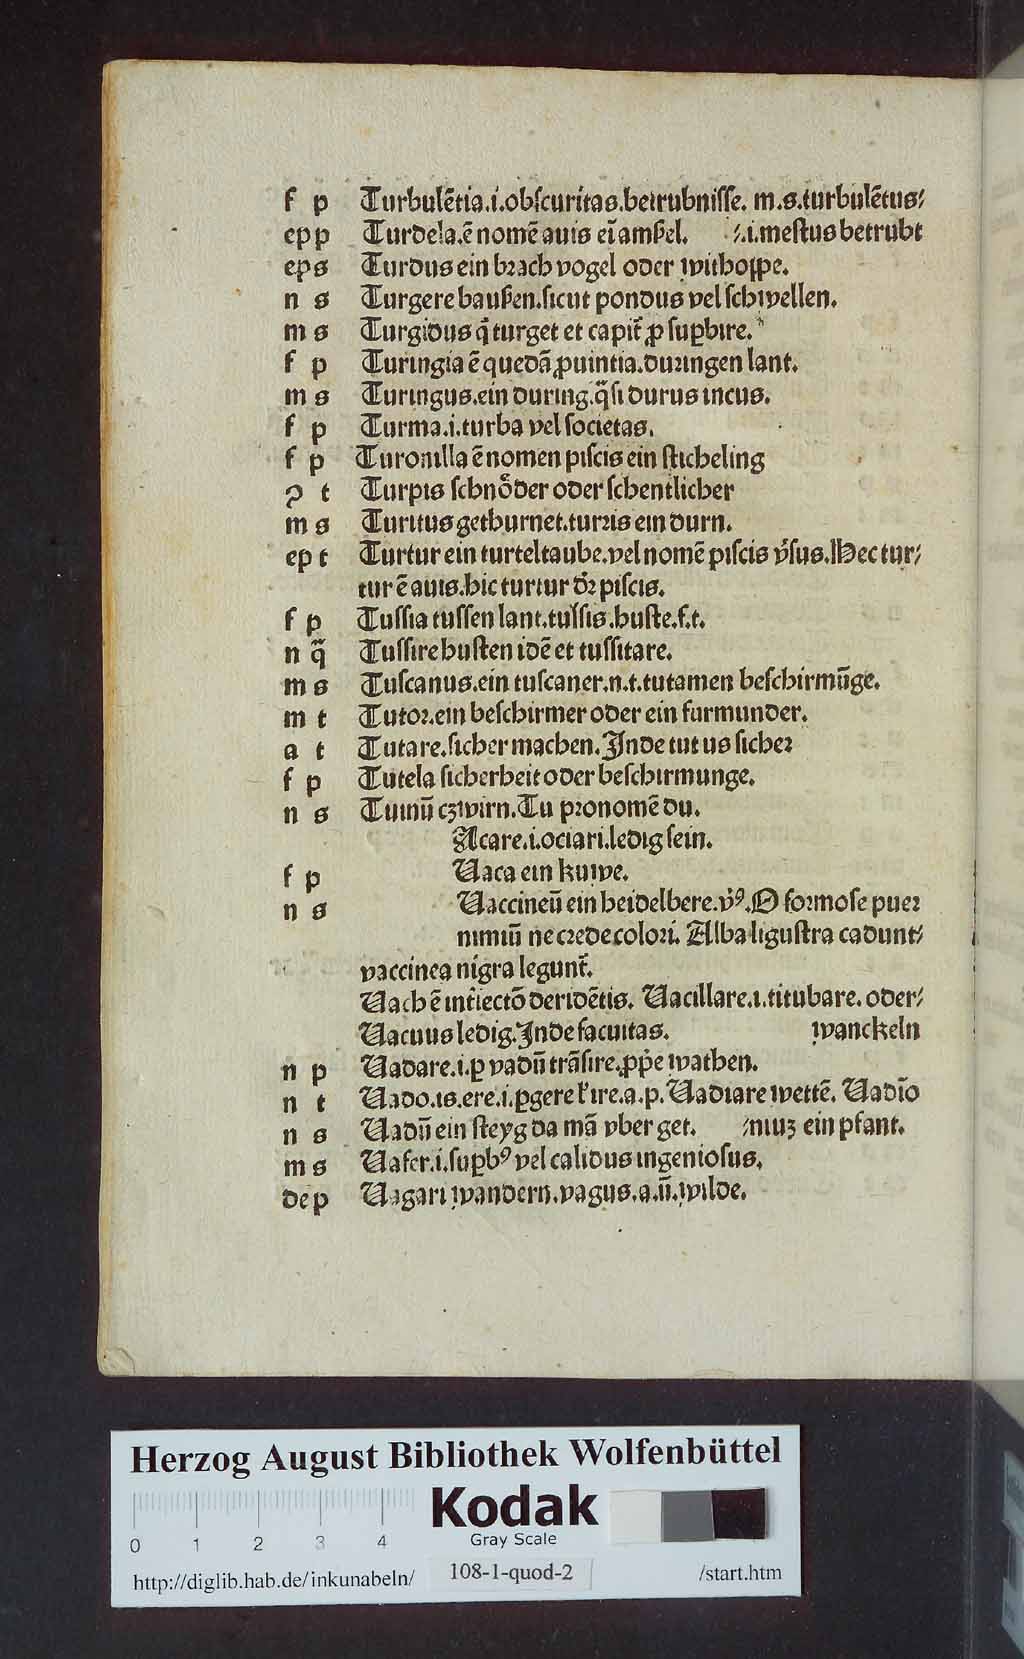 f p Turbulētia.i.obſcuritas.betrubniſſe. m.s.turbulētus⸗
ep p Turdela.ē nomē auis eī amßel. ⸗.i.meſtus betrubt
ep s Turdus ein brach vogel oder withoppe.
n s Turgere baußen.ſicut pondus vel ſchwellen.
m s Turgidus q̄ turget et capit̄ ꝓ ſuꝑbire.
f p Turingia ē quedā ꝓuintia.duringen lant.
m s Turingus.ein during.q̄ſi durus incus.
f p Turma.i.turba vel ſocietas.
f p Turonilla ē nomen piſcis ein ſticheling
ꝯ t Turpis ſchnoͤder oder ſchentlicher
m s Turitus gethurnet.turris ein durn.
ep t Turtur ein turteltaube.vel nomē piſcis v̓ſus.Hec tur⸗
tur ē auis.hic turtur dr̄ piſcis.
f p Tuſſia tuſſen lant.tuſſis.huſte.f.t.
n q̄ Tuſſire huſten idē et tuſſitare.
m s Tuſcanus.ein tuſcaner.n.t.tutamen beſchirmūge.
m t Tutor.ein beſchirmer oder ein furmunder.
a t Tutare.ſicher machen.Inde tutus ſicher
f p Tutela ſicherheit oder beſchirmunge.
n s Tuinū czwirn.Tu pronomē du.
Acare.i.ociari.ledig ſein.
f p Uaca ein kuwe.
n s Uaccineū ein heidelbere.v̓ꝰ.O formoſe puer
nimiū ne crede colori. Alba liguſtra cadunt⸗
vaccinea nigra legunt̄.
Uach ē int̄iectō deridētis. Uacillare.i.titubare. oder⸗
Uacuus ledig.Inde facuitas. wanckeln
n p Uadare.i.ꝑ vadū trāſire.ꝓp̄e wathen.
n t Uado.is.ere.i.ꝑgere l̓ ire.a.p.Uadiare wettē. Uadīo
n s Uadū ein ſteyg da mā vber get. ⸗niuʒ ein pfant.
m s Uafer.i.ſuꝑbꝰ vel calidus ingenioſus.
de p Uagari wandern.vagus.a.ū.wilde.
Herzog August Bibliothek Wolfenbüttel
Kodak
Gray Scale
0 1 2 3 4
http://diglib.hab.de/inkunabeln/ 108-1-quod-2 /start.htm